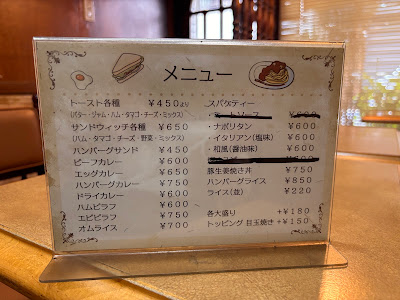 メニュー
トースト各種 ¥450より
(バター・ジャム・ハム・タマゴ・チーズ・ミックス)
サンドウィッチ各種 ¥650
(ハム・タマゴ・チーズ・野菜・ミックス)
ハンバーグサンド ¥450
ビーフカレー ¥600
エッグカレー ¥650
ハンバーグカレー ¥750
ドライカレー ¥600
ハムピラフ ¥600
エビピラフ ¥750
オムライス ¥700
スパゲティー
・ミートソース ¥600
・ナポリタン ¥600
・イタリアン(塩味) ¥600
・和風(醤油味) ¥600
¥600
豚生姜焼き丼 ¥750
ハンバーグライス ¥850
ライス(並) ¥220
各大盛り +¥180
トッピング 目玉焼き +¥150